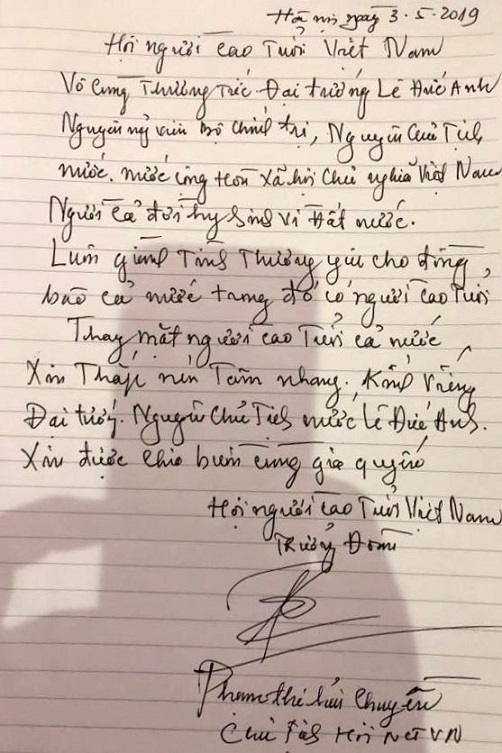 Hà nội ngày 3.5.2019
Hội người cao Tuổi Việt Nam
Vô cùng Thương Tiếc Đại tướng Lê Đức Anh
Nguyên ủy viên Bộ Chính trị, Nguyên Chủ Tịch
nước. nước Cộng Hòa Xã hội Chủ nghĩa Việt Nam
Người cả đời hy sinh vì Đất nước.
Luôn giành Tình Thương yêu cho đồng
bào cả nước trong đó có người cao Tuổi
Thay mặt người cao Tuổi cả nước
Xin Thắp nén Tâm nhang. Kính Viếng
Đại tướng. Nguyên Chủ Tịch nước Lê Đức Anh.
Xin được chia buồn cùng gia quyến
Hội người Cao Tuổi Việt Nam
Trưởng Đoàn
Phạm thị hải Chuyền
Chủ Tịch Hội NCT VN